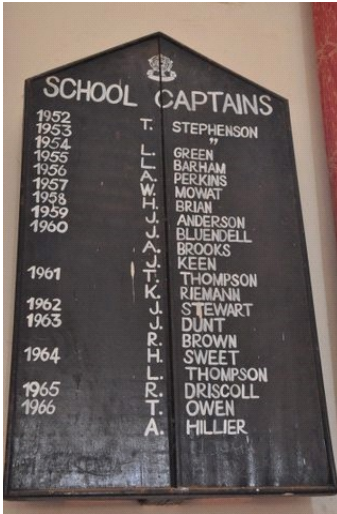 SCHOOL CAPTAINS
1952 T. STEPHENSON
1953 "
1954 L. GREEN
1955 L. BARHAM
1956 A. PERKINS
1957 W. MOWAT
1958 H. BRIAN
1959 J. ANDERSON
1960 J. BLUENDELL
A. BROOKS
J. KEEN
1961 T. THOMPSON
K. RIEMANN
1962 J. STEWART
1963 J. DUNT
R. BROWN
1964 H. SWEET
L. THOMPSON
1965 R. DRISCOLL
1966 T. OWEN
A. HILLIER